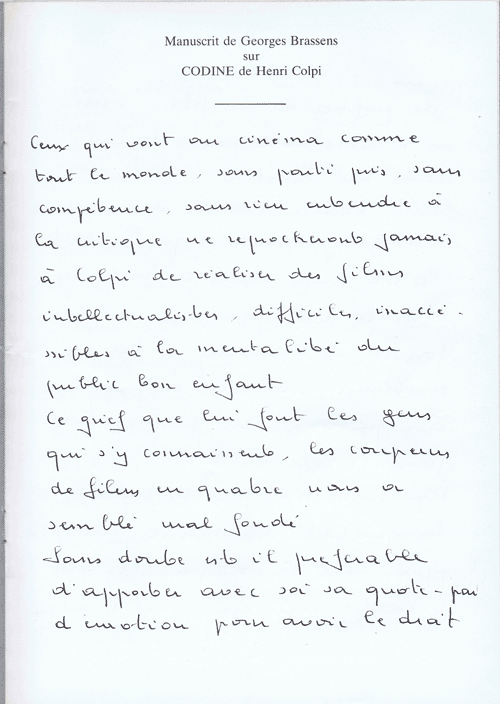 Manuscrit de Georges Brassens
sur
CODINE de Henri Colpi
Ceux qui vont au cinéma comme
tout le monde, sans parti pris, sans
compétence, sans rien entendre à
la critique ne reprocheront jamais
à Colpi de réaliser des films
intellectualistes, difficiles, inacce-
ssibles à la mentalité du
public bon enfant
Ce grief que lui font les gens
qui s'y connaissent, les coupeurs
de films en quatre nous a
semblé mal fondé
Sans doute est il préférable
d'apporter avec soi sa quote-part
d'émotion pour avoir le droit